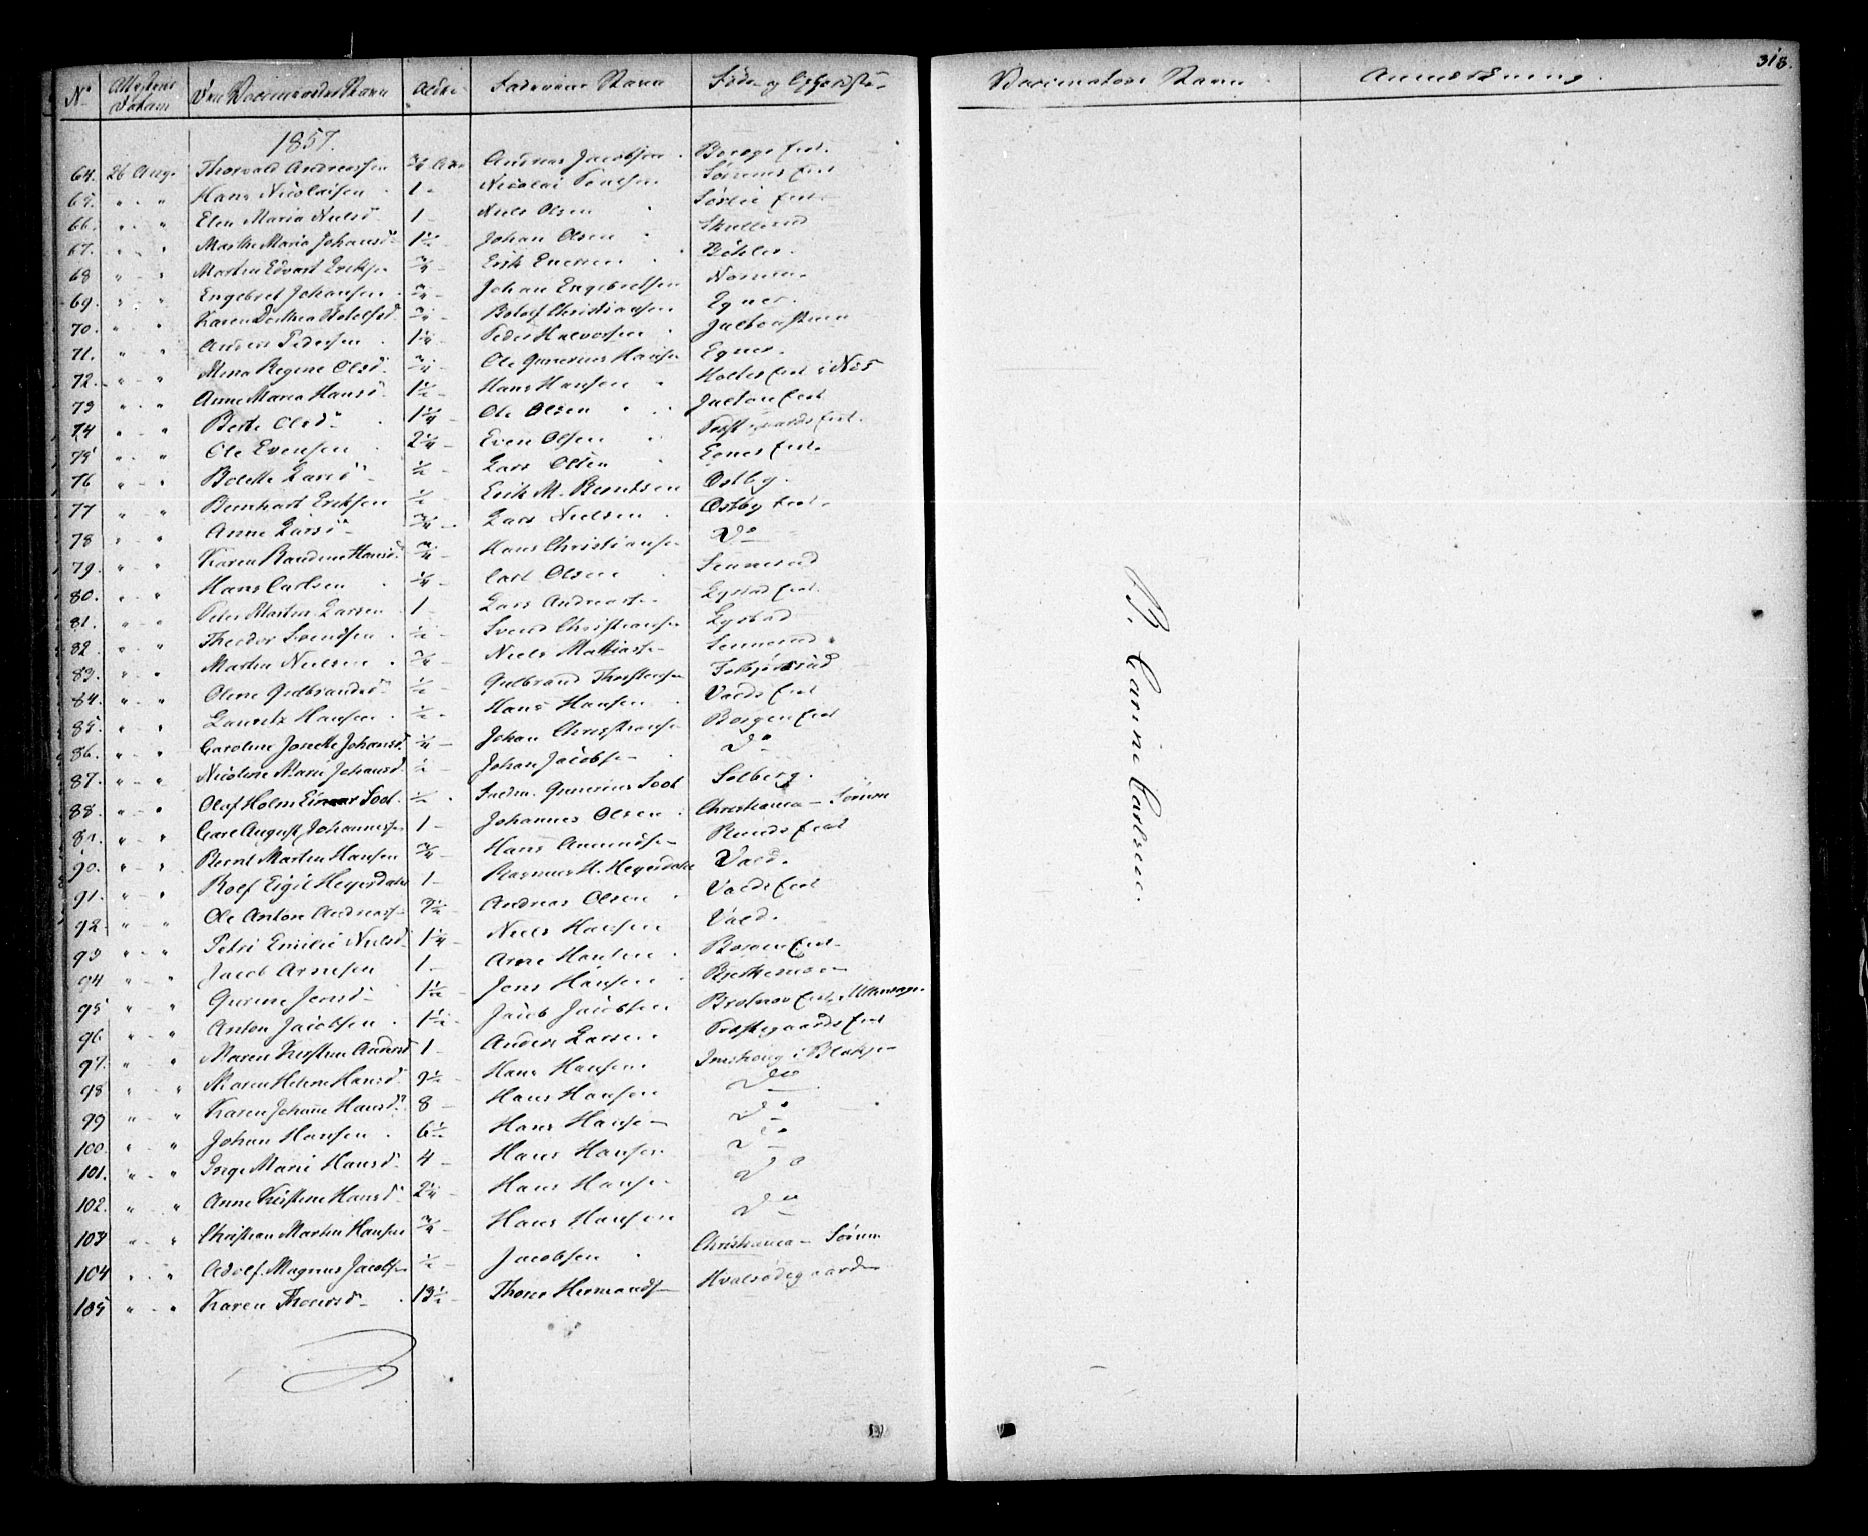 No | Attestens Datum | Den Vaccineredes Navn | Alder | Faderens Navn | Føde- og Opholdsste-
1857.
64. | 26 Aug. | Thorvald Andreassen | 3/4 Aar | Andreas Jacobsen | Borge Eie.
65. | " - " | Hans Nicolaisen | 1 - | Nicolai Poulsen | Sørums Eie
66. | " - " | Elen Maria Nielsd. | 1 - | Niels Olsen | Sørlie Eie.
67. | " - " | Marthe Maria Johansd. | 1 1/2 - | Johan Olsen | Skullerud
68 | " - " | Martin Edvart Eriksen | 3/4 - | Erik Evensen | Bøhler.
69. | " - " | Engebret Johansen | 3/4 - | Johan Engebretsen
70. | " - " | Karen Dorthea Bolelsd. | 3/4 - | Christiansen | Egner.
71. | " - " | Anders Pedersen | 1 1/4 - | Peder Halvorsen
72. | " - " | Mina Regine Olsd. | 3/4 - | Ole Gunerius Hansen | Egner.
73 | " - " | Anne Maria Hansd. | 1 1/2 - | Hans Hansen | Holters Eie i Næs
74 | " - " | Berte Olsd. | 1 1/4 - | Ole Olsen | Julton Eie
75 | " - " | Ole Evensen | 2 1/4 - | Even Olsen | Præstegaards Eie.
76 | " - " | Bolette Larsd. | 1/2 - | Lars Olsen | Egner Eie.
77 | " - " | Bernhart Eriksen | 1/2 - | Erik M. Berntsen | Østby.
78 | " - " | Anne Larsd. | 3/4 - | Lars Nielsen | Østby Eie.
79. | " - " | Karen Randine Hansd. | 3/4 - | Hans Christiansen | Do
80. | " - " | Hans Carlsen | 1/4 - | Carl Olsen | Sennerud
81. | " - " | Peter Martin Larsen | 1 - | Lars Andreasen | Lystad Eie.
82. | " - " | Theodor Svendsen | 1/2 - | Svend Christiansen | Lystad
83. | " - " | Martin Nielsen | 3/4 - | Niels Mathiasen | Sennerud
84. | " - " | Oline Gulbrandsd. | 1/2 - | Gulbrand Thorstensen
85. | " - " | Lauritz Hansen | 1/2 - | Hans Hansen | Valds Eie
86. | " - " | Caroline Josette Johansd. | 1/4 - | Johan Christiansen | Borgen Eie
87. | " - " | Nicoline Marie Johansd. | 1/2 - | Johan Jacobsen | Do
88. | " - " | Olaf Holm Einar Soot. | 1/2 - | Gunerius Soot | Solberg.
89. | " - " | Carl August Johannesen | 1 - | Johannes Olsen | Christiania - Sørum
90. | " - " | Bernt Martin Hansen | 3/4 - | Hans Amundsen | Runds Eie
91. | " - " | Rolf Eigil Heyerdahl | 1 - | Rasmus H. Heyerdahl | Vald.
92. | " - " | Ole Anton Andreasen | 2 1/2 - | Andreas Olsen | Valds Eie
93 | " - " | Petri Emilie Nielsd. | 1 1/4 - | Niels Hansen | Vald.
94 | " - " | Jacob Arnesen | 1 - | Arne Hansen | Borgen Eie
95 | " - " | Gurine Jensd. | 1 1/2 - | Jens Hansen
96. | " - " | Anton Jacobsen | 1 1/2 - | Jacob Jacobsen | Eie, Ullensager
97. | " - " | Maren Kirstine Andersd. | 1 - | Anders Larsen | Præstegaards Eie
98 | " - " | Maren Helene Hansd. | 9 1/2 - | Hans Hansen | Imshoug i Blakjer
99 | " - " | Karen Johanne Hansd. | 8 - | Hans Hansen | Do
100. | " - " | Johan Hansen | 6 1/2 - | Hans Hansen | Do
101. | " - " | Inge Marie Hansd. | 4 - | Hans Hansen | Do
102. | " - " | Anne Kirstine Hansd. | 2 1/4 - | Hans Hansen | Do
103 | " - " | Christian Martin Hansen | 3/4 - | Hans Hansen | Do
104 | " - " | Adolf Magnus Jacobsen | 1/2 - | Jacobsen | Christiania - Sørum
105 | " - " | Karen Thoresd. | 13 1/2 - | Thorer Hermandsen | Hvalsødegaarden
318.
Vaccinators Navn | Anmærkning.
B. Carine Carlsen.